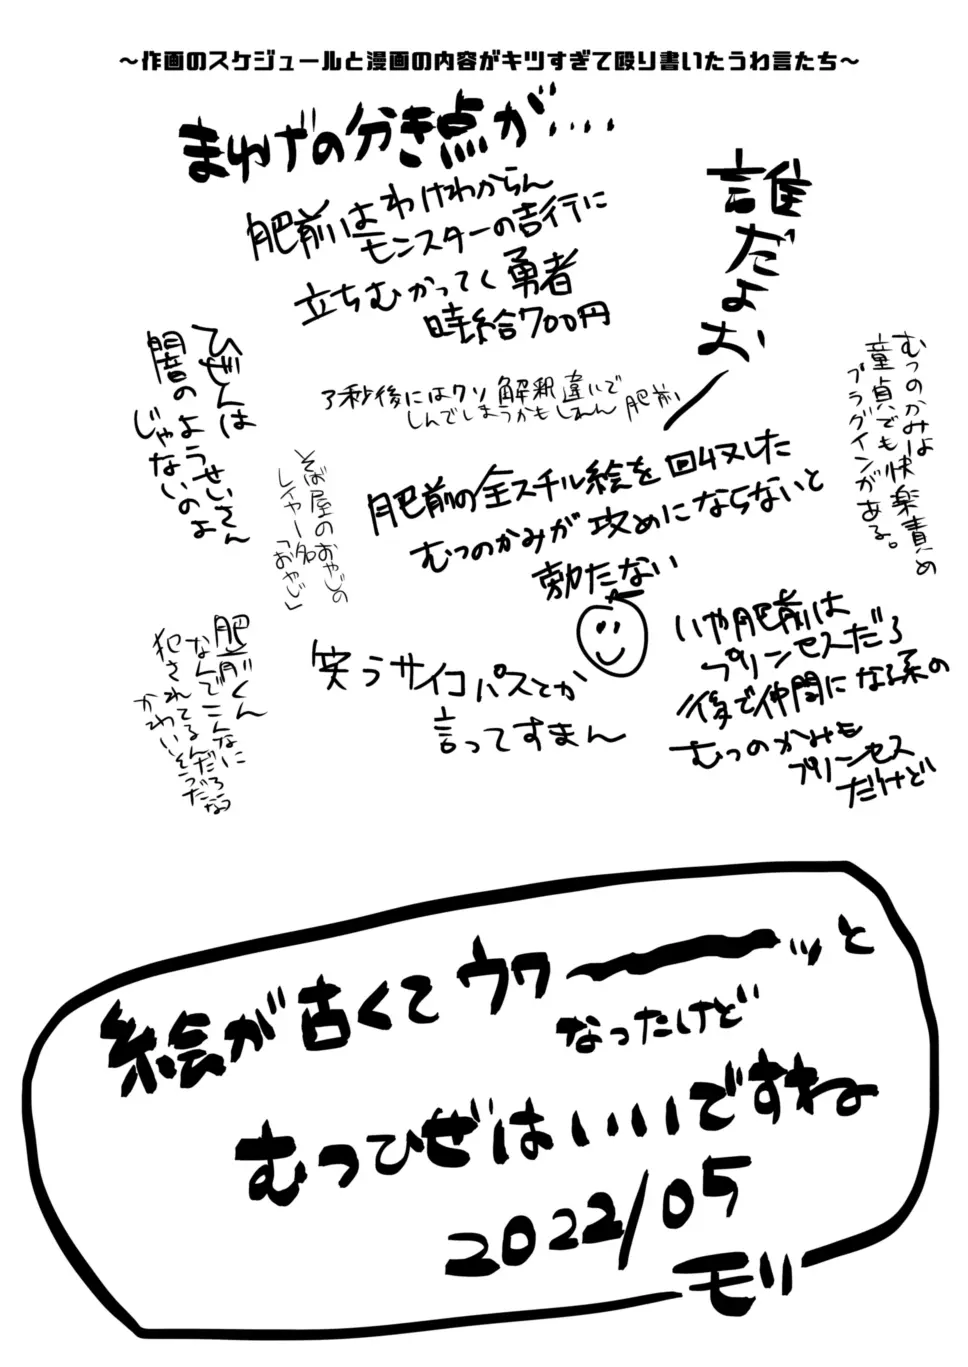 ～作画のスケジュールと漫画の内容がキツすぎて殴り書いたうわ言たち～
まゆげの分き点が‥‥
肥前はわけわからん
モンスターの吉行に
立ちむかってく勇者
時給700円
誰だよお
ひぜんは
闇のようせいさん
じゃないのよ
3秒後にはクソ解釈違いで
しんでしまうかもしれん 肥前
むつのかみは
童貞でも快楽責め
プラグインがある。
そば屋のおやじの
レイヤー名
「おやじ」
肥前の全スチル絵を回収した
むつのかみが攻めにならないと
勃たない
肥前くん
なんでこんなに
犯されてるんだろう
かわいそうだな
笑うサイコパスとか
言ってすまん
いや肥前は
プリンセスだろ
後で仲間になる系の
むつのかみも
プリンセス
だけど
絵が古くてウワーーッと
なったけど
むつひぜはいいですね
2022/05
モリ